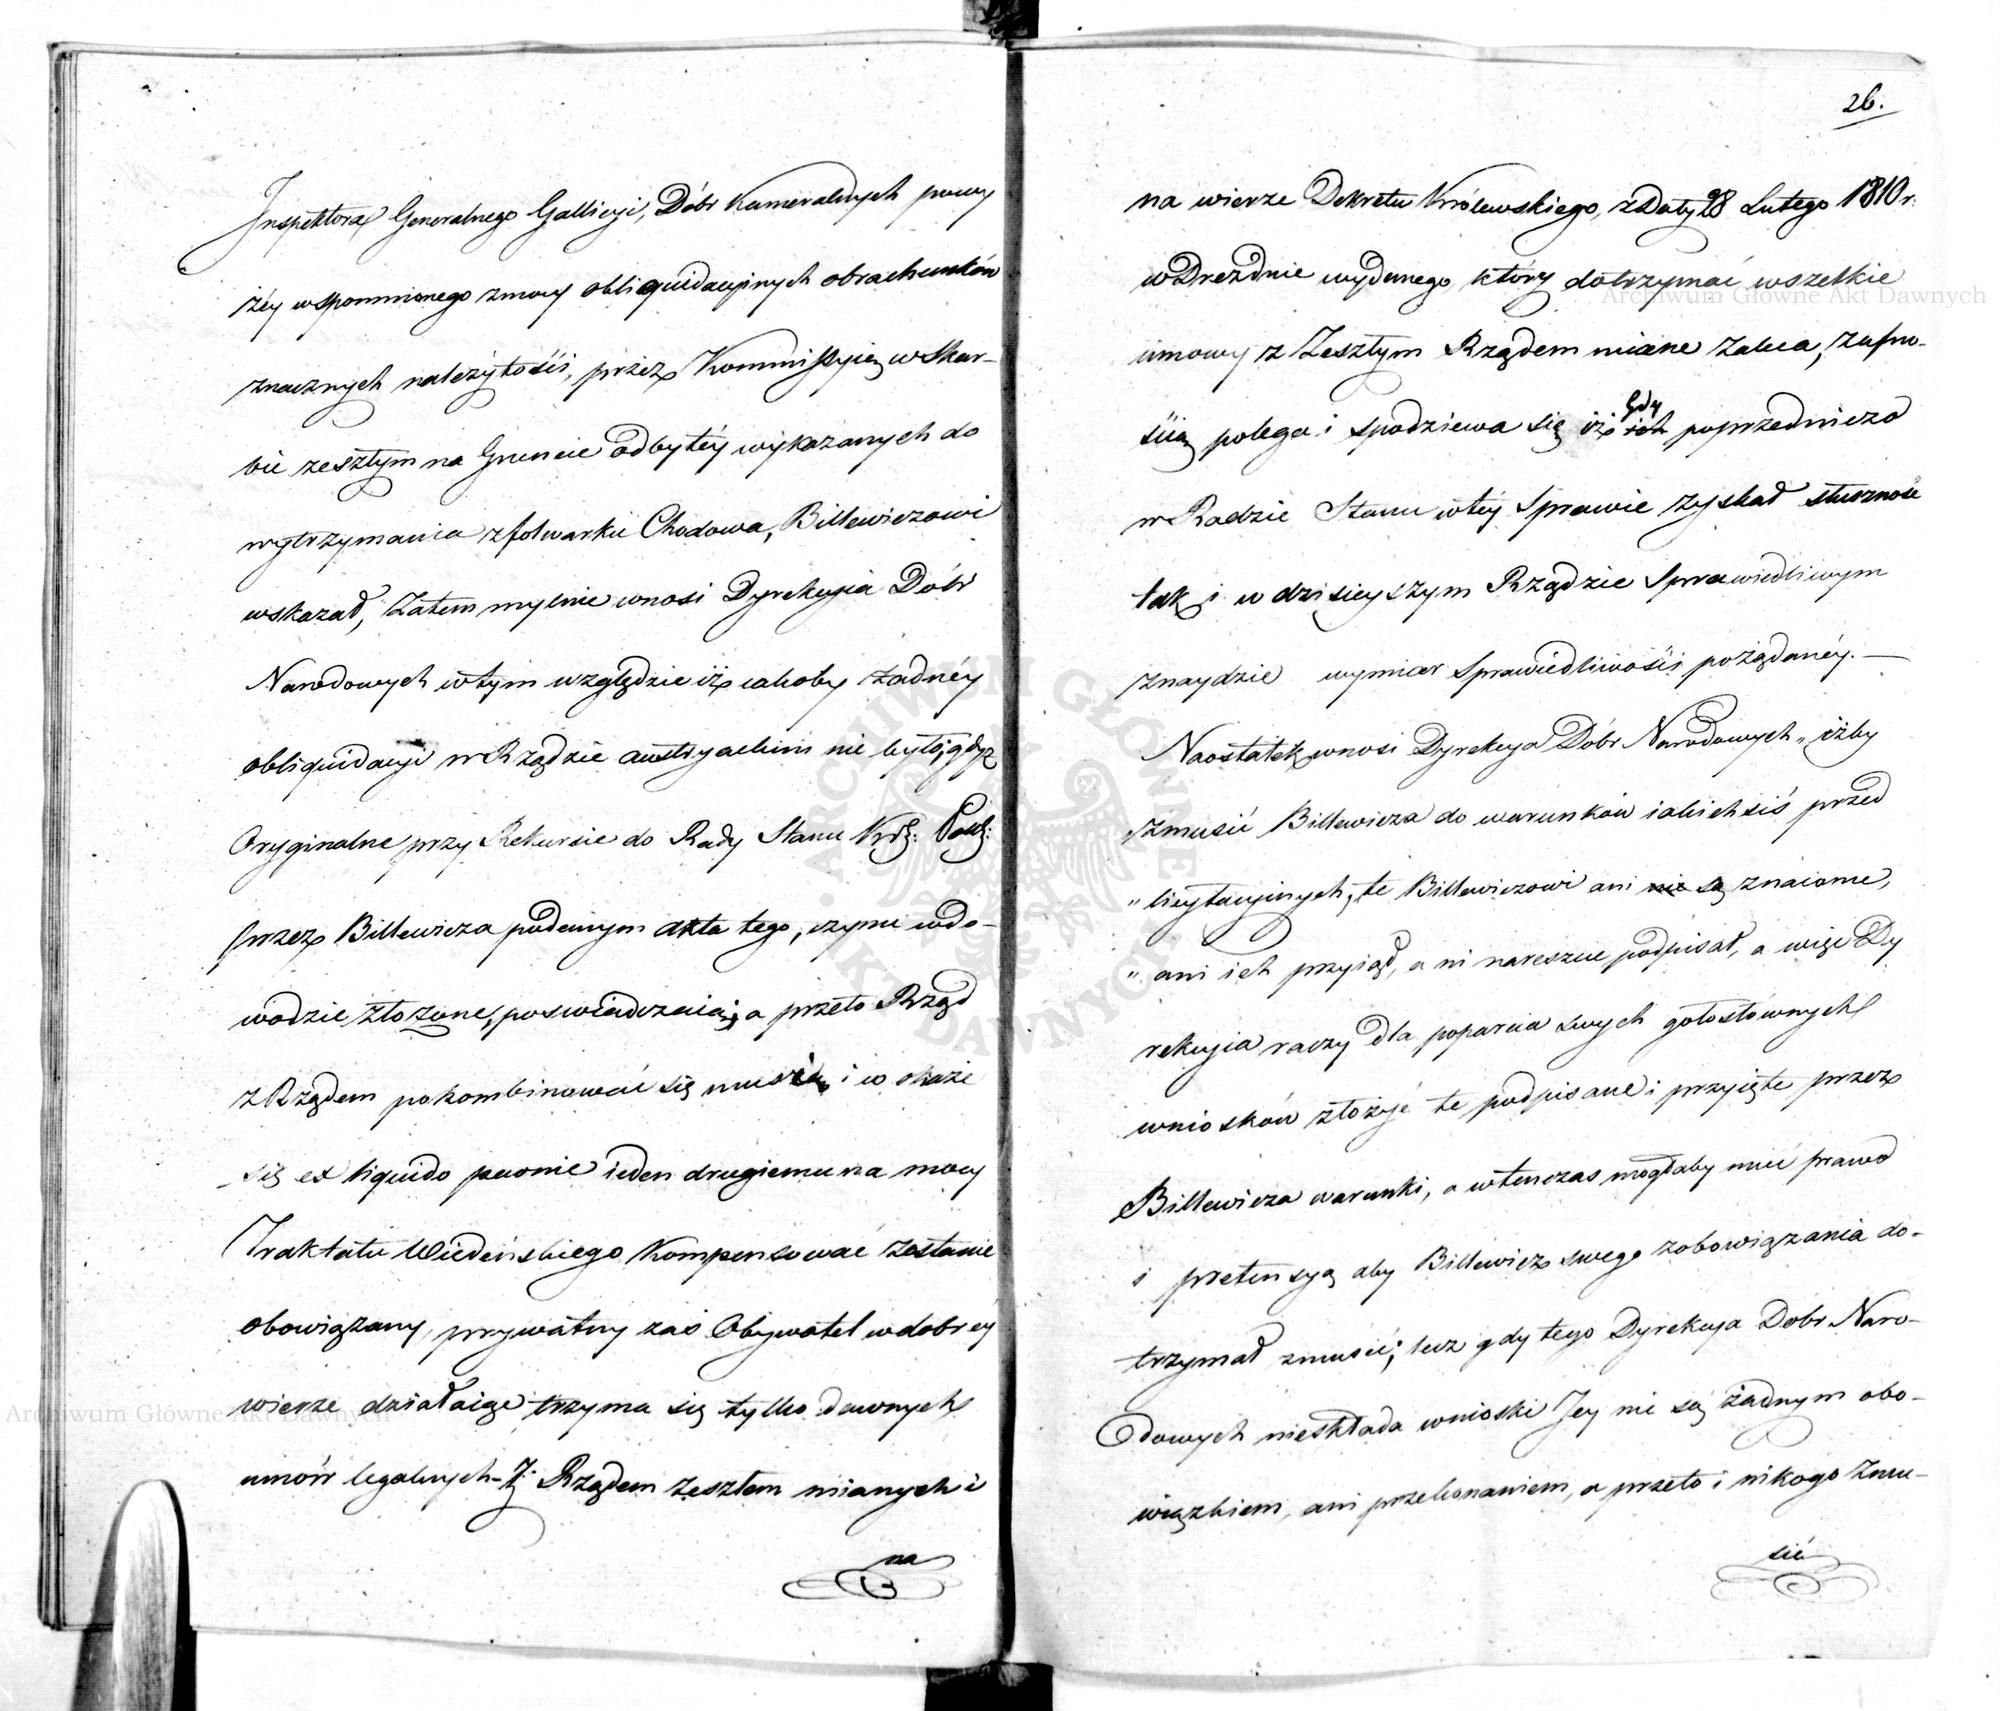 Inspektora Generalnego Gallicyi, Dóbr Kameralnych powy
żéy wspomnionego zmowy obliquidacyinych obrachunków
znacznych należytości, przez Kommissyią w Skar-
bie zeszłym na Gruncie odbytéy wykazanych do
wytrzymania z folwarku Chodowa, Billewiczowi
wskazał, Zatem mylnie wnosi Dyrekcyia Dóbr
Narodowych w tym względzie iż iakoby żadnéy
obliquidacyi w Rządzie austryackim nie było, gdyż
Oryginalne przy Rekursie do Rady Stanu
przez Billewicza podanym akta tego, czynu wdo-
wodzie złożone, poswiadczaią, a przeto Rząd
z Rządem pokombinować się muszą, i w okaże
się ex liquido pewnie ieden drugiemu na mocy
Traktatu Wiedeńskiego Kompensować zostanie
obowiązany, prywatny zaś Obywatel w dobréy
wierze działaiąc trzyma się tylko dawnych
umów legalnych z Rządem Zeszłem mianych i
na
26.
na wierze Dekretu Królewskiego, z Daty 28 Lutego 1810 r.
w Dreznie wydanego, który dotrzymać wszelkie
umowy z Zeszłym Rządem miane zaleca,
polega i spodziewa się iż Gdy poprzedniczo
w Radzie Stanu w téy Sprawie zyskał słuszność
tak i w dzisieyszym Rządzie Sprawiedliwym
znaydzie wymiar Sprawiedliwości pożądanéy. —
Naostatek wnosi Dyrekcya Dóbr Narodowych „ iżby
zmusić Billewicza do warunków iakichsiś przed
„ licytacyinych, te Billewiczowi ani nie są znaiome,
„ ani ich przyiął, ani nareszcie podpisał, a więc Dy
rekcyia raczy dla poparcia swych gołosłownych
wniosków złożyć te podpisane i przyięte przez
Billewicza warunki, a wtenczas mogłaby mieć prawo
i pretensyą aby Billewicz swego zobowiązania do-
trzymał zmusić; lecz gdy tego Dyrekcya Dobr Naro-
dowych nieskłada wnioski Jey nie są żadnym obo-
wiązkiem, ani przekonaniem, a przeto i nikogo Zmu-
sić
Archiwum Główne Akt Dawnych
Archiwum Główne Akt Dawnych
ARCHIWUM GŁÓWNE AKT DAWNYCH